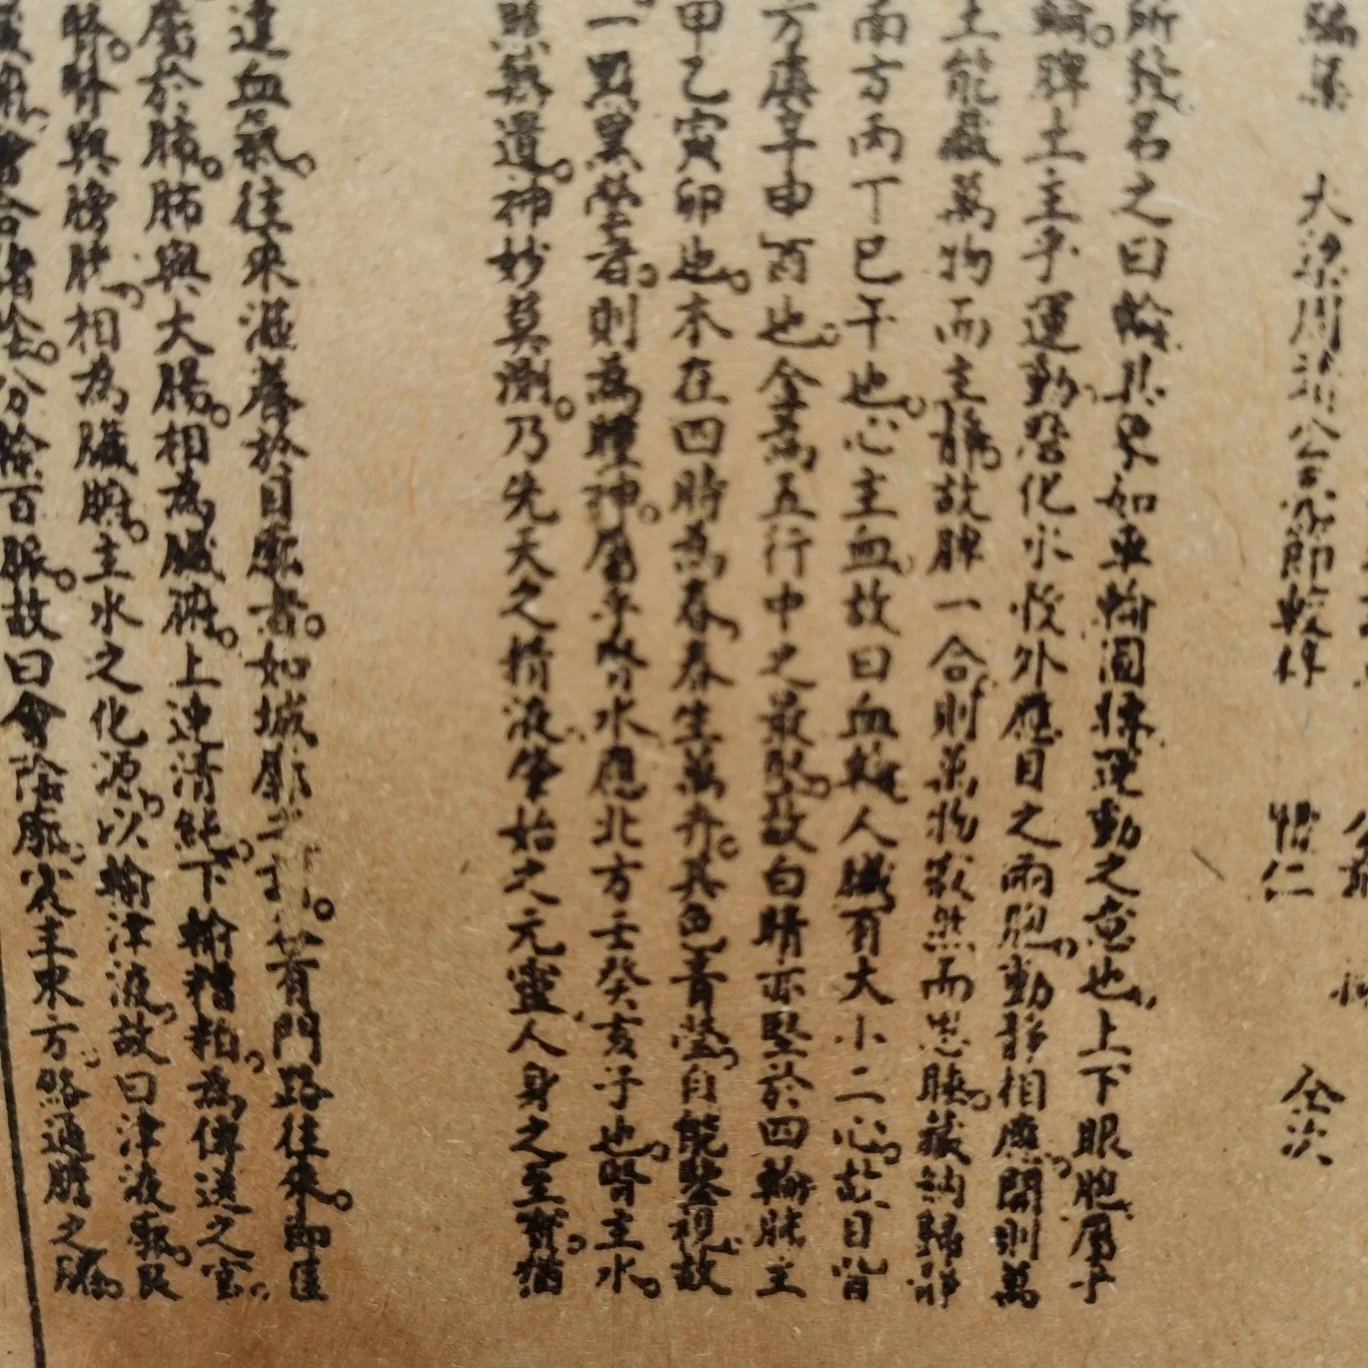 編集 大梁周靖公 節較梓 惜仁 仝次
所從名之曰輪其象如車輪圓轉運動之意也上下眼胞屬乎
輪脾土主乎運動磨化水穀外應目之兩胞動靜相應開則萬
土能藏萬物而主靜故脾一合則萬物寂然而思睡藏納歸靜
南方丙丁巳午也心主血故曰血輪人臟有大小二心故目眥
方庚辛申酉也金為五行中之最堅故白睛亦堅於四輪肺主
甲乙寅卯也木在四時為春春生萬卉其色青瑩自能鑒視故
一點黑瑩者則為瞳神屬乎腎水應北方壬癸亥子也腎主水
照無遺神妙莫測乃先天之精液肇始之元靈人身之至寶猶
達血氣往來滋養於目廓者如城廓之 有門路往來即匡
屬於肺肺與大腸相為臟腑上連清純下輸糟粕為傳送之官
腎腎與膀胱相為臟腑主水之化源以輸津液故曰津液廓艮
會合諸陰分輸百脈故曰會陰廓 主東方 絡通膽之腑